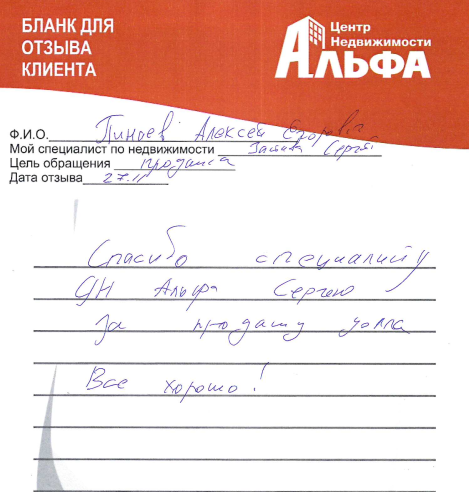 БЛАНК ДЛЯ
ОТЗЫВА
КЛИЕНТА
Центр
Недвижимости
АЛЬФА
Ф.И.О. Пиноев Алексей Егорович
Мой специалист по недвижимости Сергей
Цель обращения продажа
Дата отзыва 27.11
Спасибо специалисту
ЦН Альфа Сергею
За продажу
Все хорошо!